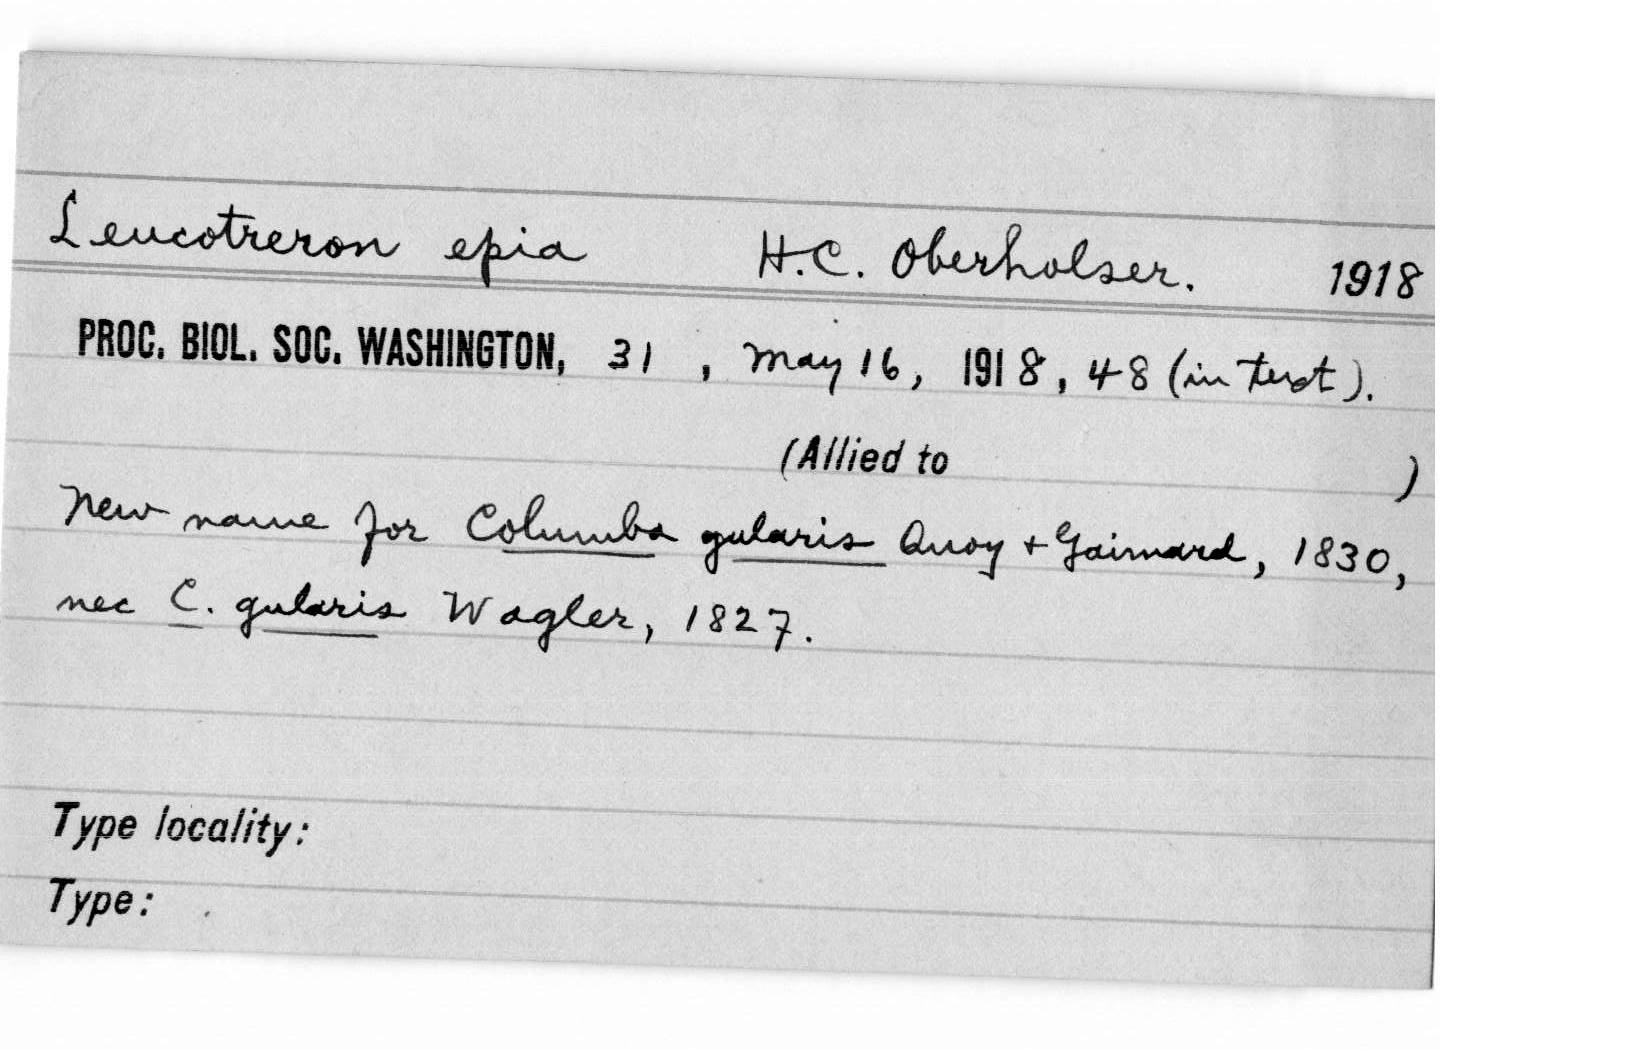 Leucotreron epia H.C. Oberholser. 1918
PROC. BIOL. SOC. WASHINGTON, 31, May 16, 1918, 48 (in text).
(Allied to )
New name for Columba gularis Quoy + Gaimard, 1830,
nec C. gularis Wagler, 1827.
Type locality:
Type: